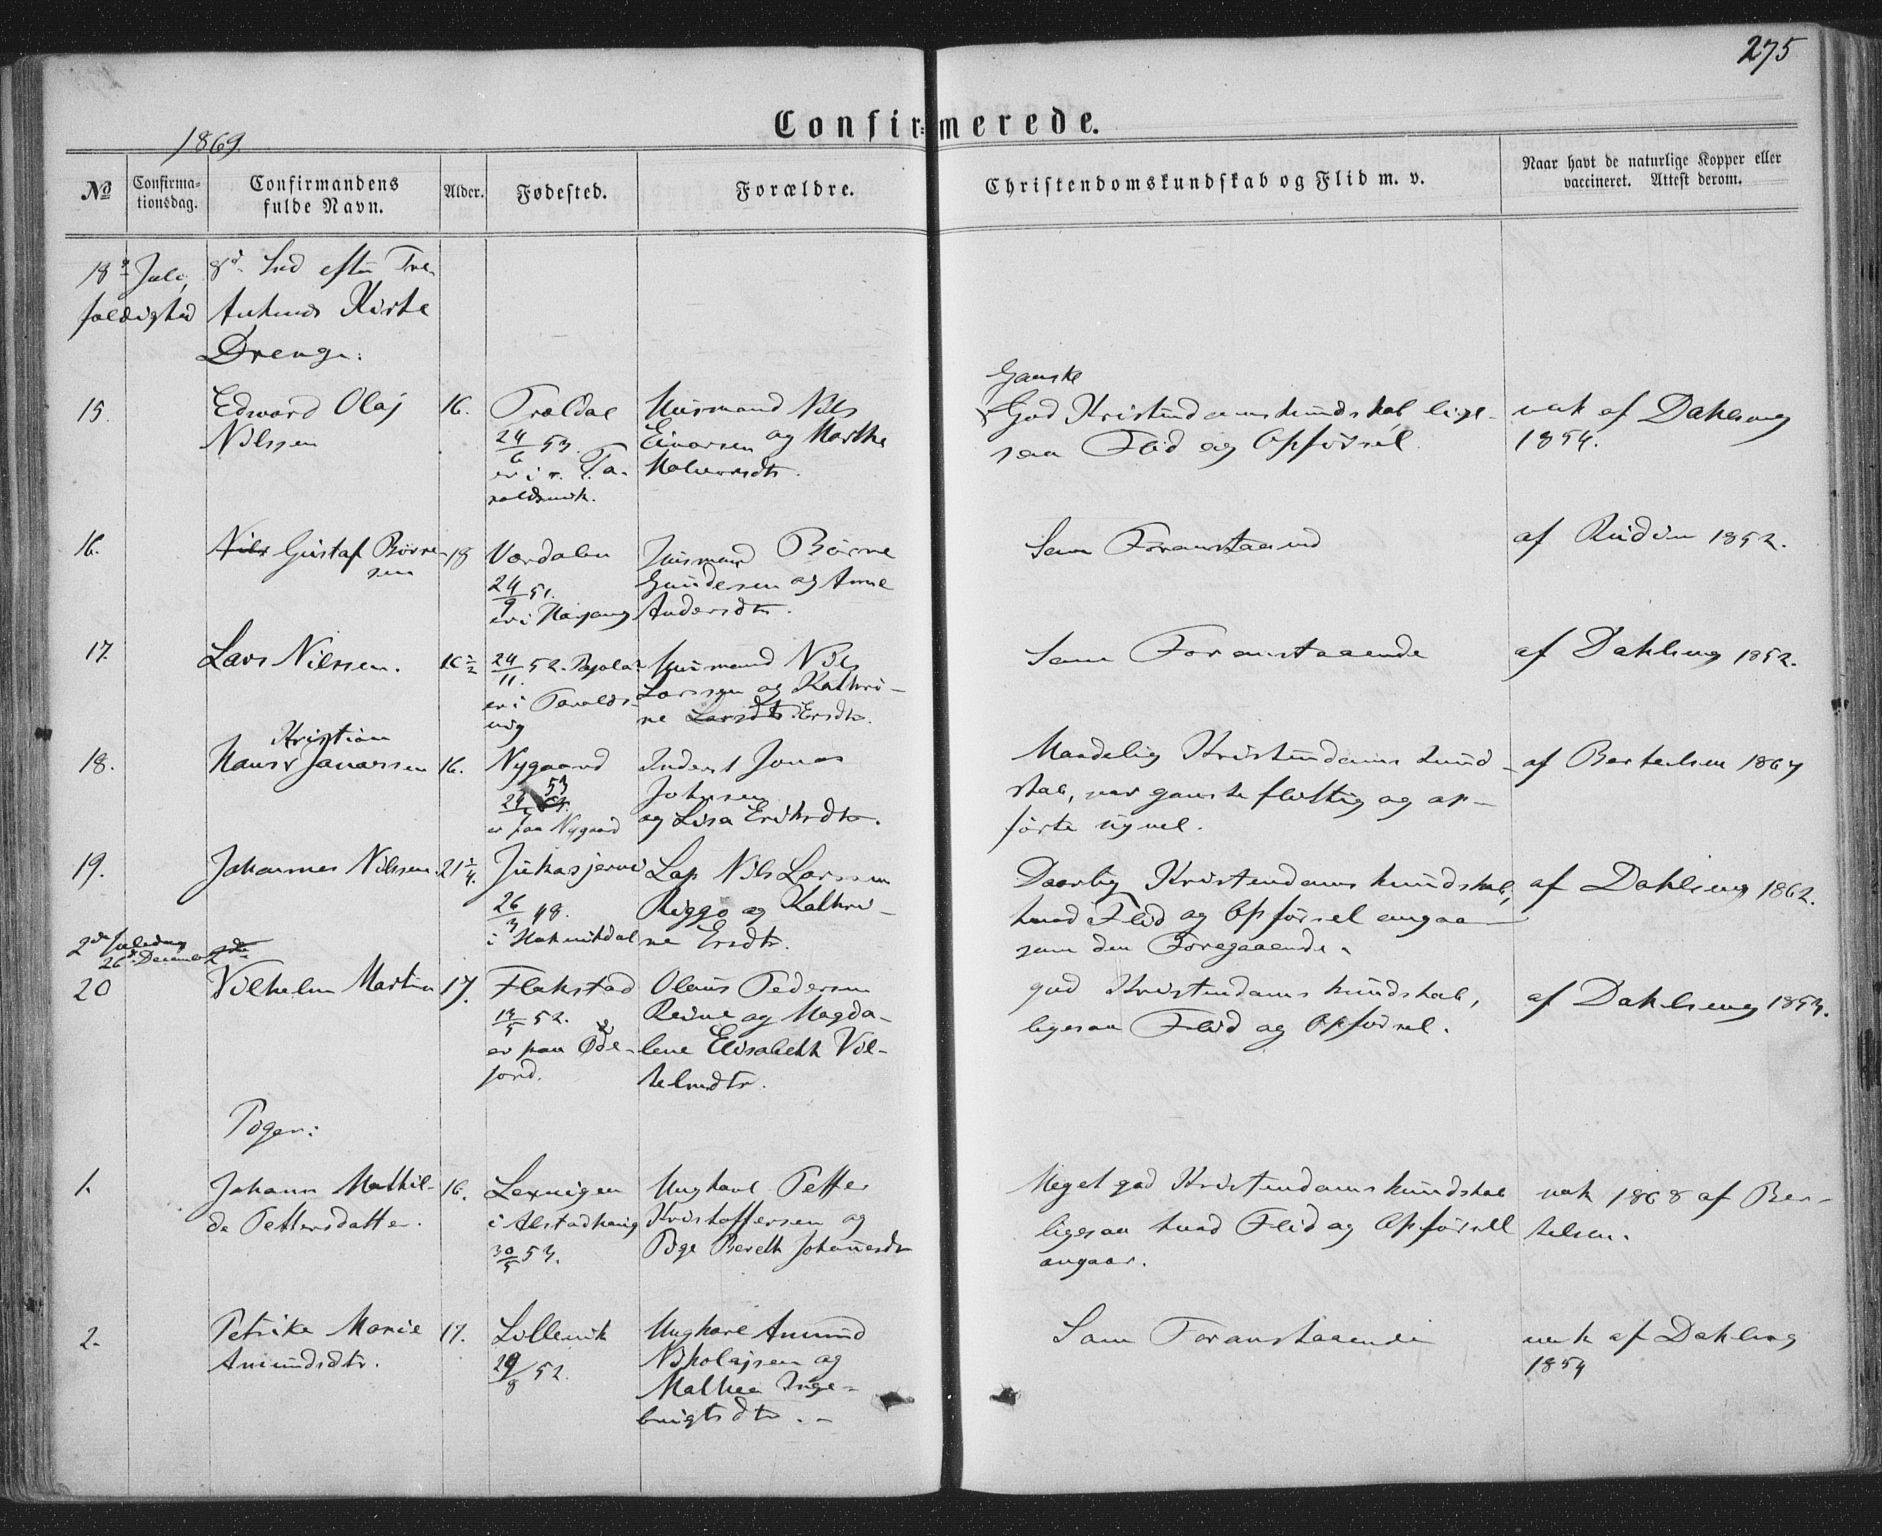 275
Confirmerede.
1869.
No
Confirma-
tionsdag.
Confirmandens
fulde Navn.
Alder.
Fødested.
Forældre.
Christendomskundskab og Flid m. v.
Naar havt de naturlige Kopper eller
vaccineret. Attest derom.
18de Juli, 8de Snd efter Tre-
foldighed Ankenes Kirke
Drenge:
15.
Edward Olaj
Nilssen
16.
Trældal
24/6 53.
er i Ta-
raldsvik.
Husmand Nils
Einarsen og Marthe
Halvorsdtr.
Ganske
God Kristendomskundskab lige-
saa Flid og Opførsel.
vak af Dahlseng
1854.
16.
Nils Gustaf Børre-
sen
18
Værdalen
24/9 51.
er i Havjang
Husmand Børre
Gundersen og Anne
Andersdtr.
Som Foranstaaend
af Rudin 1852.
17.
Lars Nilssen.
16 1/2
24/11 52.
er i Taralds-
vig
Husmand Nils
Larssen og Kathri-
ne Larsdtr Ersdtr.
Som Foranstaaende
af Dahlseng 1852.
18.
Kristian
Hans Jonassen
16.
Nygaard
53
er paa Nygaard
Inderst Jonas
Johnsen
og Lisa Eriksdtr.
Maadelig Kristendoms Kund-
skab, var ganske flittig og op-
førte sig vel.
af Bertelsen 1867
19.
Johannes Nilssen.
21 1/4.
Jukasjervi
26/3 48.
i Hakvikdal
Lap Nils Larssen
Riggo og Kathri-
ne Ersdtr.
Daarlig Kristendomskundskab,
hvad Flid og Opførsel angaa
som den Foregaaende.
af Dahlseng 1862.
2den Juledag
26de December
2de
20
Vilhelm Martin
17.
Flakstad
13/5 52.
er paa Øde-
fjord.
Olaus Pedersen
Reine og Magda-
lene Elisabeth Vil-
helmdtr.
god Kristendomskundskab,
ligesaa Flid og Opførsel.
af Dahlseng 1853.
Piger:
1.
Johanna Mathil-
de Pettersdatter.
16.
i Alstadhaug
30/5 53.
Ungkarl Petter
Kristoffersen og
Pige Bereth Johannesdtr
Meget god Kristendomskundskab
ligesaa hvad Flid og Opførsell
angaar.
vak 1868 af Ber-
telsen.
2.
Petrike Marie
Amundsdtr.
17.
Lillevik
29/8 52.
Ungkarl Amund
Nikolajsen og
Mathea Inge-
brigtsdtr.
Som Foranstaaende
vak af Dahlseng
1854